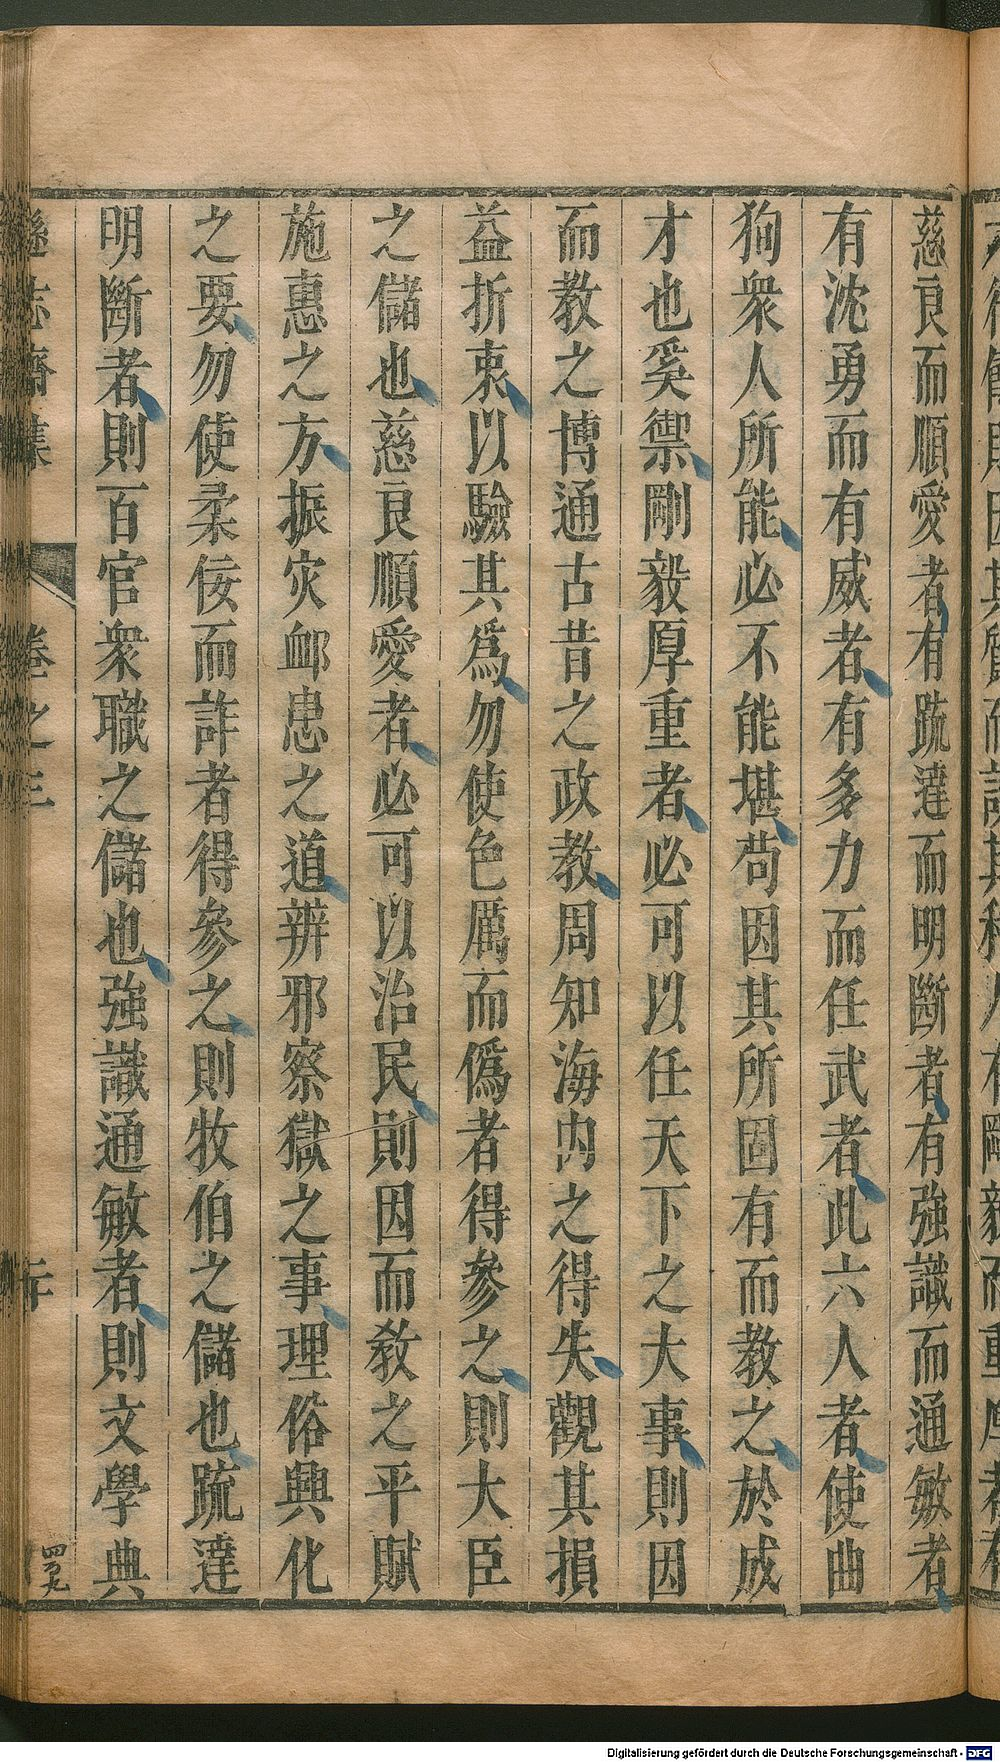 慈良而順愛者有䟽達而明斷者有強識而通敏者
有沈勇而有威者有多力而任武者此六人者使曲
狥衆人所能必不能堪苟因其所固有而教之於成
才也奚禦剛毅厚重者必可以任天下之大事則因
而教之博通古昔之政教周知海內之得失觀其損
益折衷以驗其爲勿使色厲而僞者得參之則大臣
之儲也慈良順愛者必可以治民則因而教之平賦
施惠之方振灾衈患之道辨邪察獄之事理俗興化
之要勿使柔佞而詐者得參之則牧伯之儲也䟽達
明斷者則百官衆職之儲也強識通敏者則文學典
遜志齋集
卷之三
Digitalisierung gefördert durch die Deutsche Forschungsgemeinschaft - DFG